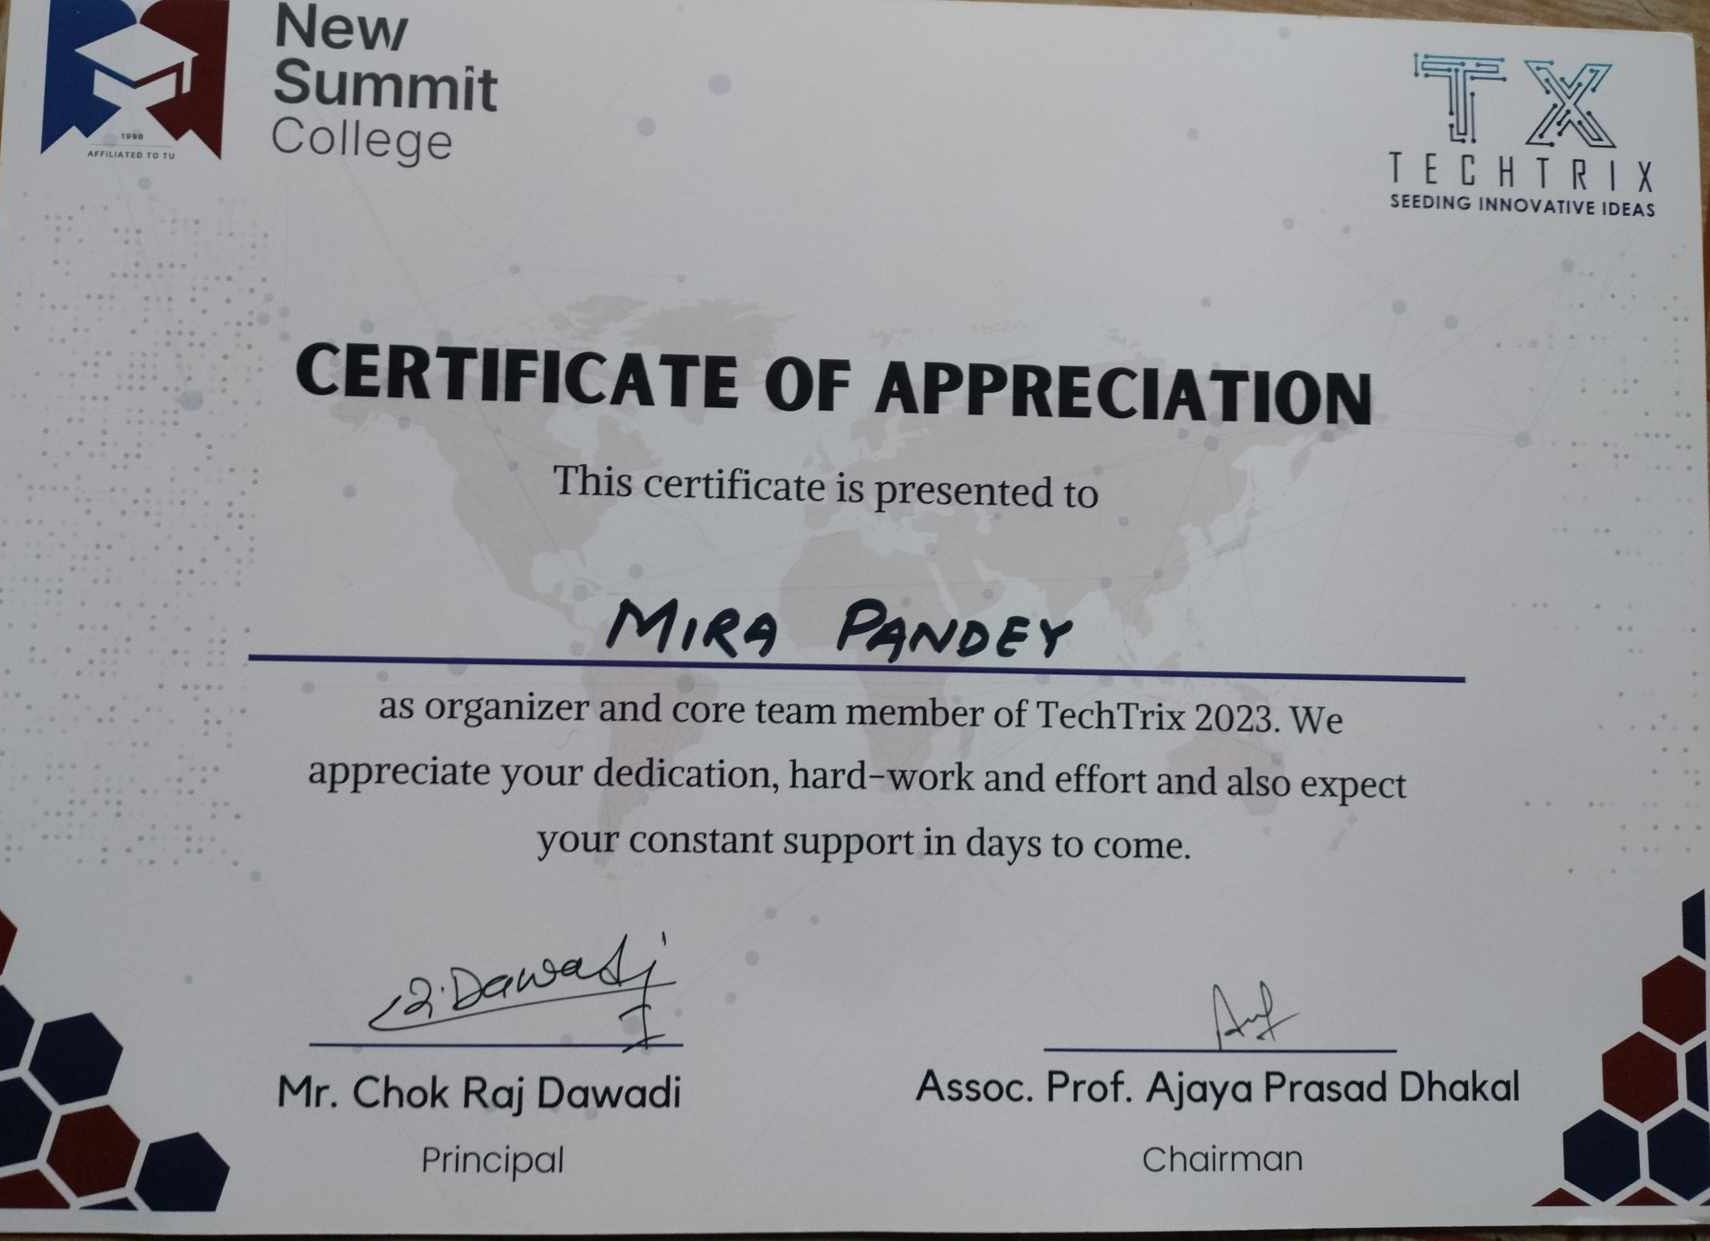 New
Summit
College
1998
AFFILIATED TO TU
TX
TECHTRIX
SEEDING INNOVATIVE IDEAS
CERTIFICATE OF APPRECIATION
This certificate is presented to
MIRA PANDEY
as organizer and core team member of TechTrix 2023. We
appreciate your dedication, hard-work and effort and also expect
your constant support in days to come.
Dawadi
Mr. Chok Raj Dawadi
Principal
Assoc. Prof. Ajaya Prasad Dhakal
Chairman